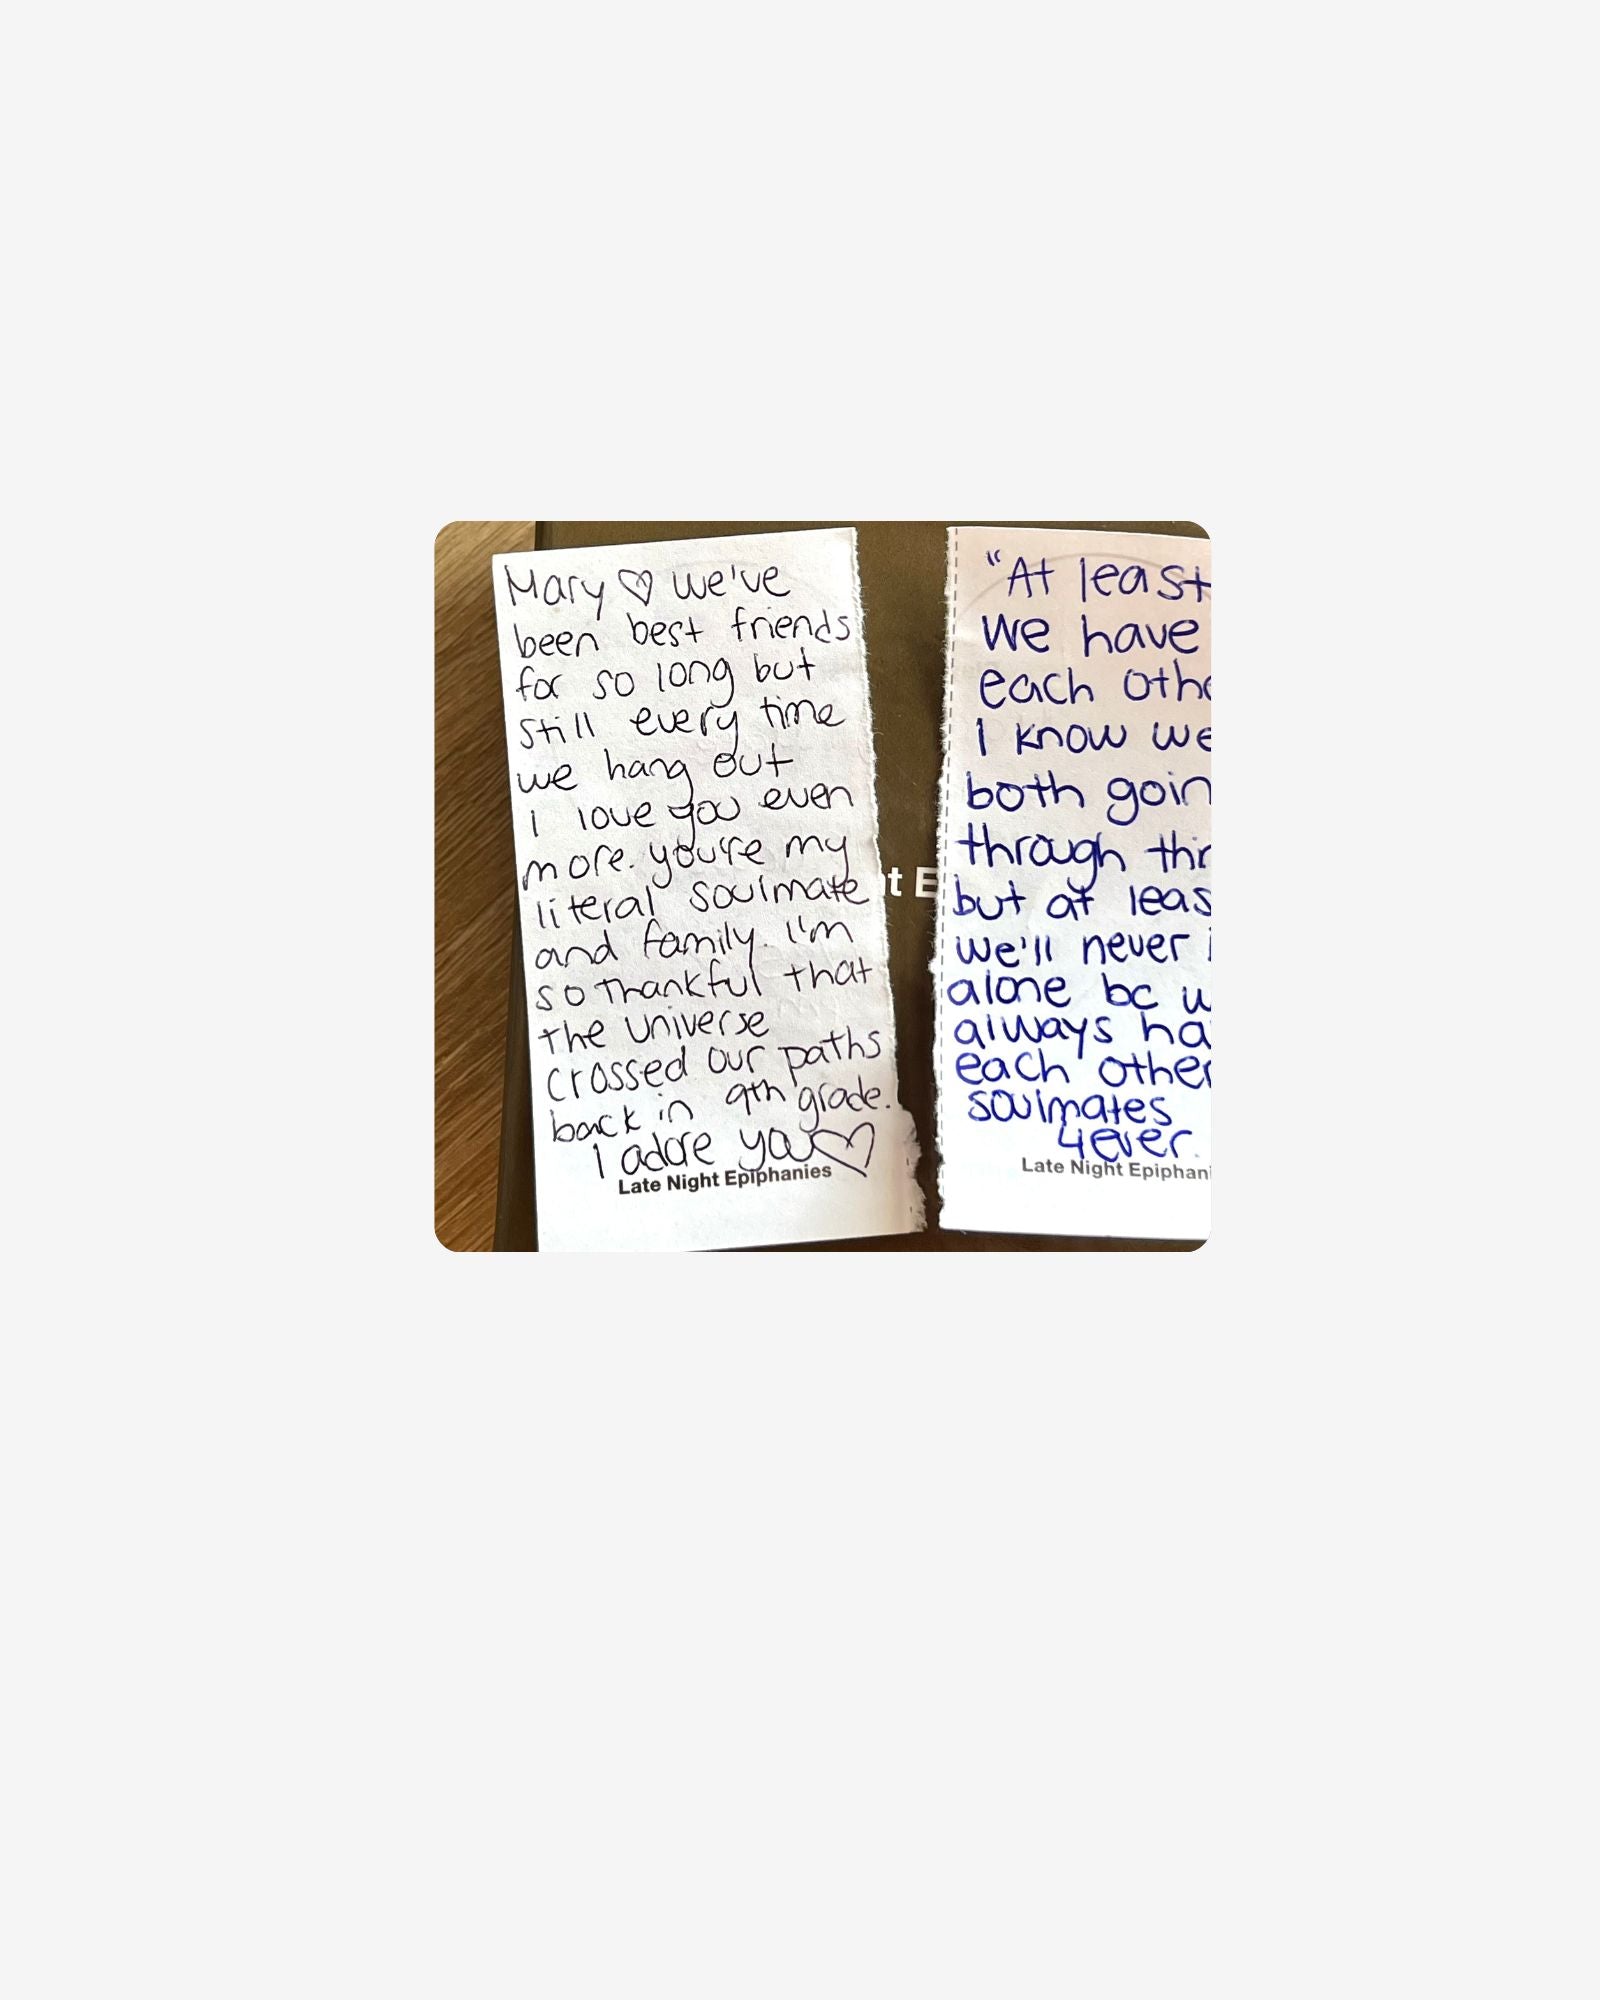 Mary ♡ we've
been best friends
for so long but
still every time
we hang out
I love you even
more. you're my
literal soulmate
and family. I'm
so thankful that
the universe
crossed our paths
back in 9th grade.
I adore you♡
Late Night Epiphanies
t E
"At least
we have
each othe
I know we
both goin
through thin
but at leas
we'll never
alone bc w
always ha
each other
soulmates
4ever.
Late Night Epiphani